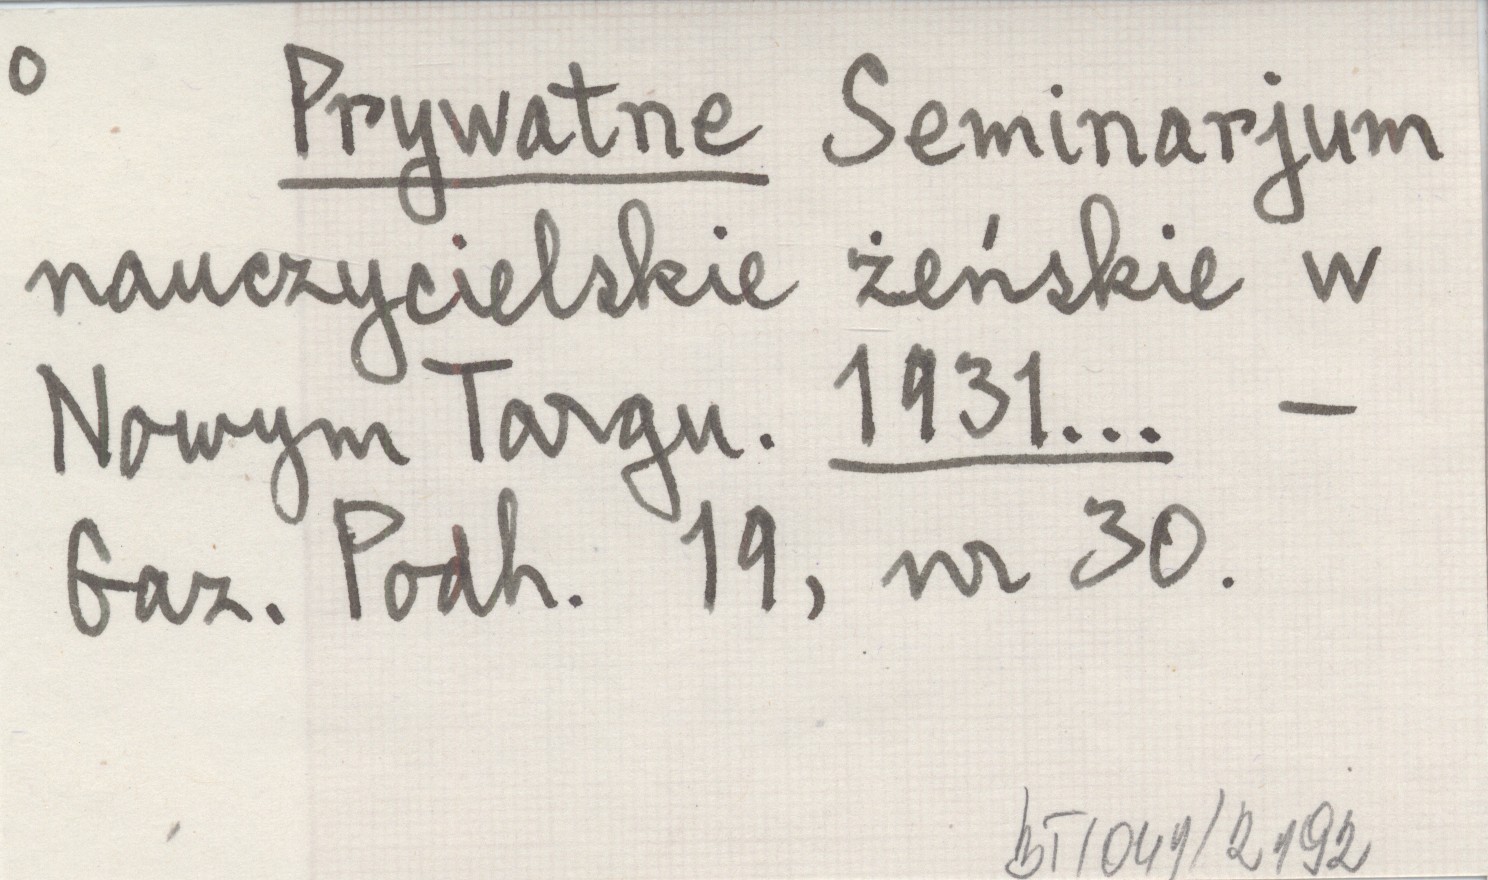 o Prywatne Seminarjum
nauczycielskie żeńskie w
Nowym Targu. 1931... –
Gaz. Podh. 19, nr 30.
BT/041/2192